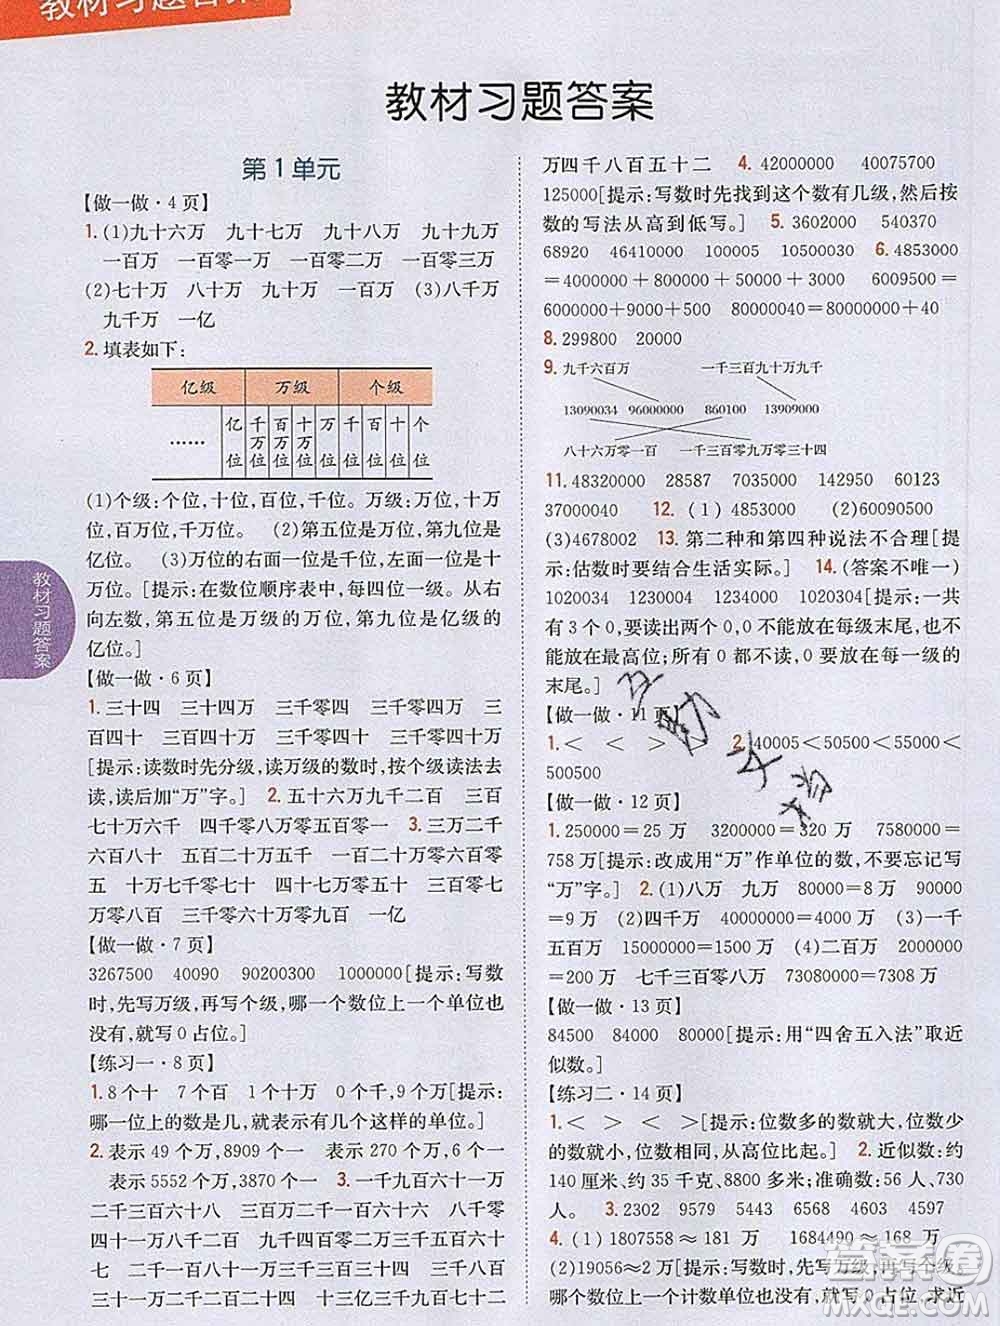 教材习题答案
教材习题答案
第1单元
【做一做·4页】
1.(1)九十六万 九十七万 九十八万 九十九万
一百万 一百零一万 一百零二万 一百零三万
(2)七十万 八十万 九十万 一百万 (3)八千万
九千万 一亿
2.填表如下:
亿级 万级 个级
…… 亿位 千万位 百万位 十万位 万位 千位 百位 十位 个位
(1)个级:个位,十位,百位,千位。万级:万位,十万
位,百万位,千万位。 (2)第五位是万位,第九位是
亿位。 (3)万位的右面一位是千位,左面一位是十
万位。[提示:在数位顺序表中,每四位一级。从右
向左数,第五位是万级的万位,第九位是亿级的
亿位。]
【做一做·6页】
1.三十四 三十四万 三千零四 三千零四万 三
百四十 三百四十万 三千四百 三千四百万
[提示:读数时先分级,读万级的数时,按个级读法去
读,读后加“万”字。] 2.五十六万九千二百 三百
七十万六千 四千零八万零五百零一 3.三万二千
六百八十 五百二十万七千 九千六百万零八百零
五 十万七千零七十 四千零七万五千八百 二百
万零八百 三千零六十万零九百 一亿
【做一做·7页】
3267500 40090 90200300 1000000[提示:写数
时,先写万级,再写个级,哪一个数位上一个单位也
没有,就写0占位。]
【练习一·8页】
1.8个十 7个百 1个十万 0个千,9个万[提示:
哪一位上的数是几,就表示有几个这样的单位。]
2.表示49个万,8909个一 表示270个万,6个一
表示5552个万,3870个一 3.一千九百六十一万
二千三百六十六 一千零四万零六百四十 三千零
六十一万八千二百 九千一百九十万零四百 八百
三十一万二千二百四十四 十三亿三千九百七十二
万四千八百五十二 4.42000000 40075000
125000[提示:写数时先找到这个数有几级,然后按
数的写法从高到低写。] 5.3602000 540370
68920 46410000 100005 10500030 6.4853000
=4000000+800000+50000+3000 6009500=
6000000+9000+500 80000040=80000000+40
8.299800 20000
9.九千六百万 一千三百九十万九千
13090034 96000000 860100 13909000
八十六万零一百 一千三百零九万零三十四
11.48320000 28587 7035000 144250 60123
37000040 12.(1)4853000 (2)60090500
(3)4678002 13.第二种和第四种说法不合理[提
示:估数时要结合生活实际。] 14.(答案不唯一)
1020034 1230004 1234000 1020304[提示:一共
有3个0,要读出两个0,0不能放在每级末尾,也不
能放在最高位;所有0都不读,0要放在每一级的
末尾。]
【做一做·11页】
1.< < > 2.40005<50500<55000<
500500
【做一做·12页】
1.250000=25万 3200000=320万 7580000=
758万[提示:改成用“万”作单位的数,不要忘记写
“万”字。] 2.(1)八万 九万 80000=8万 90000
=9万 (2)四千万 40000000=4000万 (3)一千
五百万 15000000=1500万 (4)二百万 2000000
=200万 七千三百零八万 73080000=7308万
【做一做·13页】
84500 84000 80000[提示:用“四舍五入法”取近
似数。]
【练习二·14页】
1.< > < >[提示:位数多的数就大,位数少
的数就小,位数相同,从高位比起。] 2.近似数:约
140厘米、约35千克、8800多米;准确数:56人、730
人。 3.2302 9579 5443 7558 6568 4897
4.(1)1807558≈181万 1684490≈168万
(2)19056≈2万[提示:写数时,先写万级,再写个级,
哪个数位上一个计数单位也没有,就在那个数位上写0占位,求近